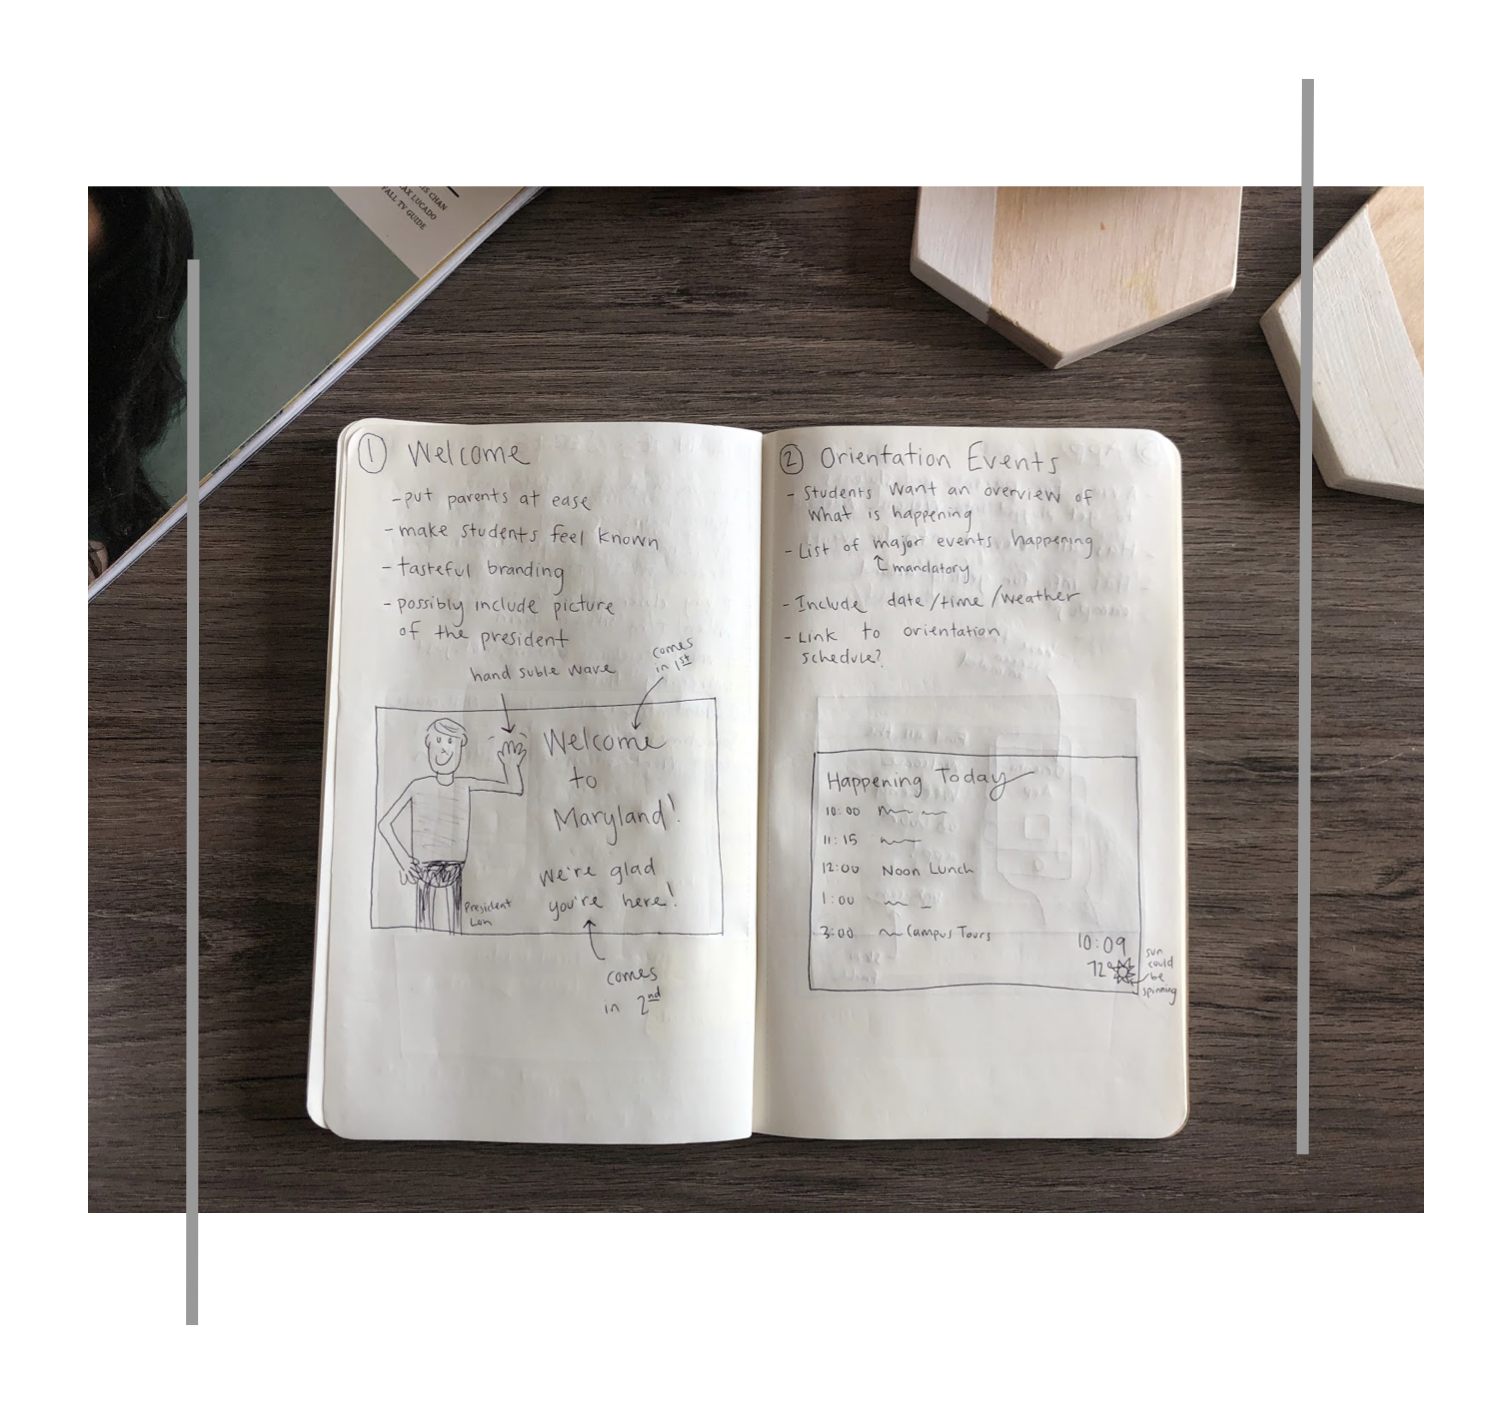 IS CHAN
AX LUCADO
FALL TV GUIDE
1 Welcome
- put parents at ease
- make students feel known
- tasteful branding
- possibly include picture
of the president
hand suble wave
comes
in 1st
Welcome
to
Maryland!
we're glad
you're here!
President
comes
in 2nd
2 Orientation Events
- Students want an overview of
what is happening
- List of major events happening
mandatory
- Include date/time/weather
- Link to orientation
schedule?
Happening Today
10:00
11:15
12:00 Noon Lunch
1:00
3:00 Campus Tours
10:09
72°
sun
could
be
spinning